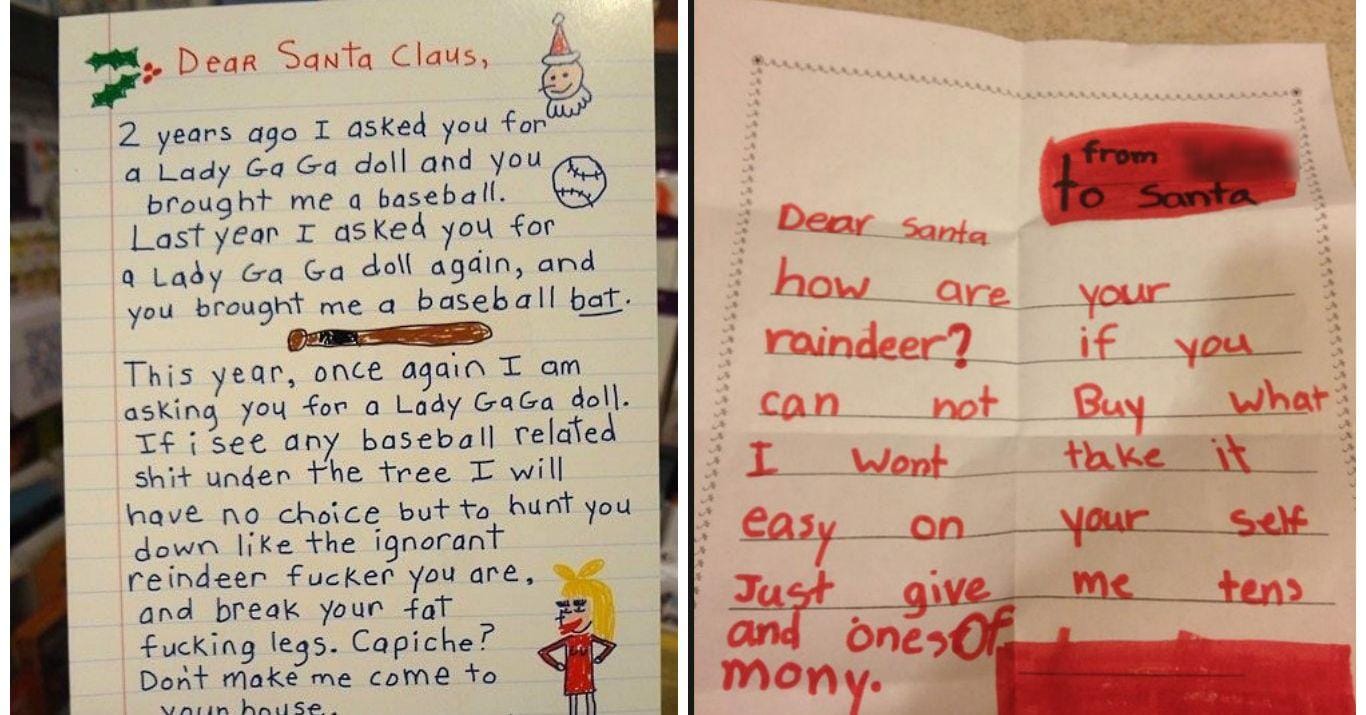 Dear Santa Claus,
2 years ago I asked you for
a Lady Ga Ga doll and you
brought me a baseball.
Last year I asked you for
a Lady Ga Ga doll again, and
you brought me a baseball bat.
This year, once again I am
asking you for a Lady GaGa doll.
If i see any baseball related
shit under the tree I will
have no choice but to hunt you
down like the ignorant
reindeer fucker you are,
and break your fat
fucking legs. Capiche?
Don't make me come to
your house.
from
to Santa
Dear Santa
how are your
raindeer? if you
can not Buy what
I wont take it
easy on your self
Just give me tens
and ones Of
mony.